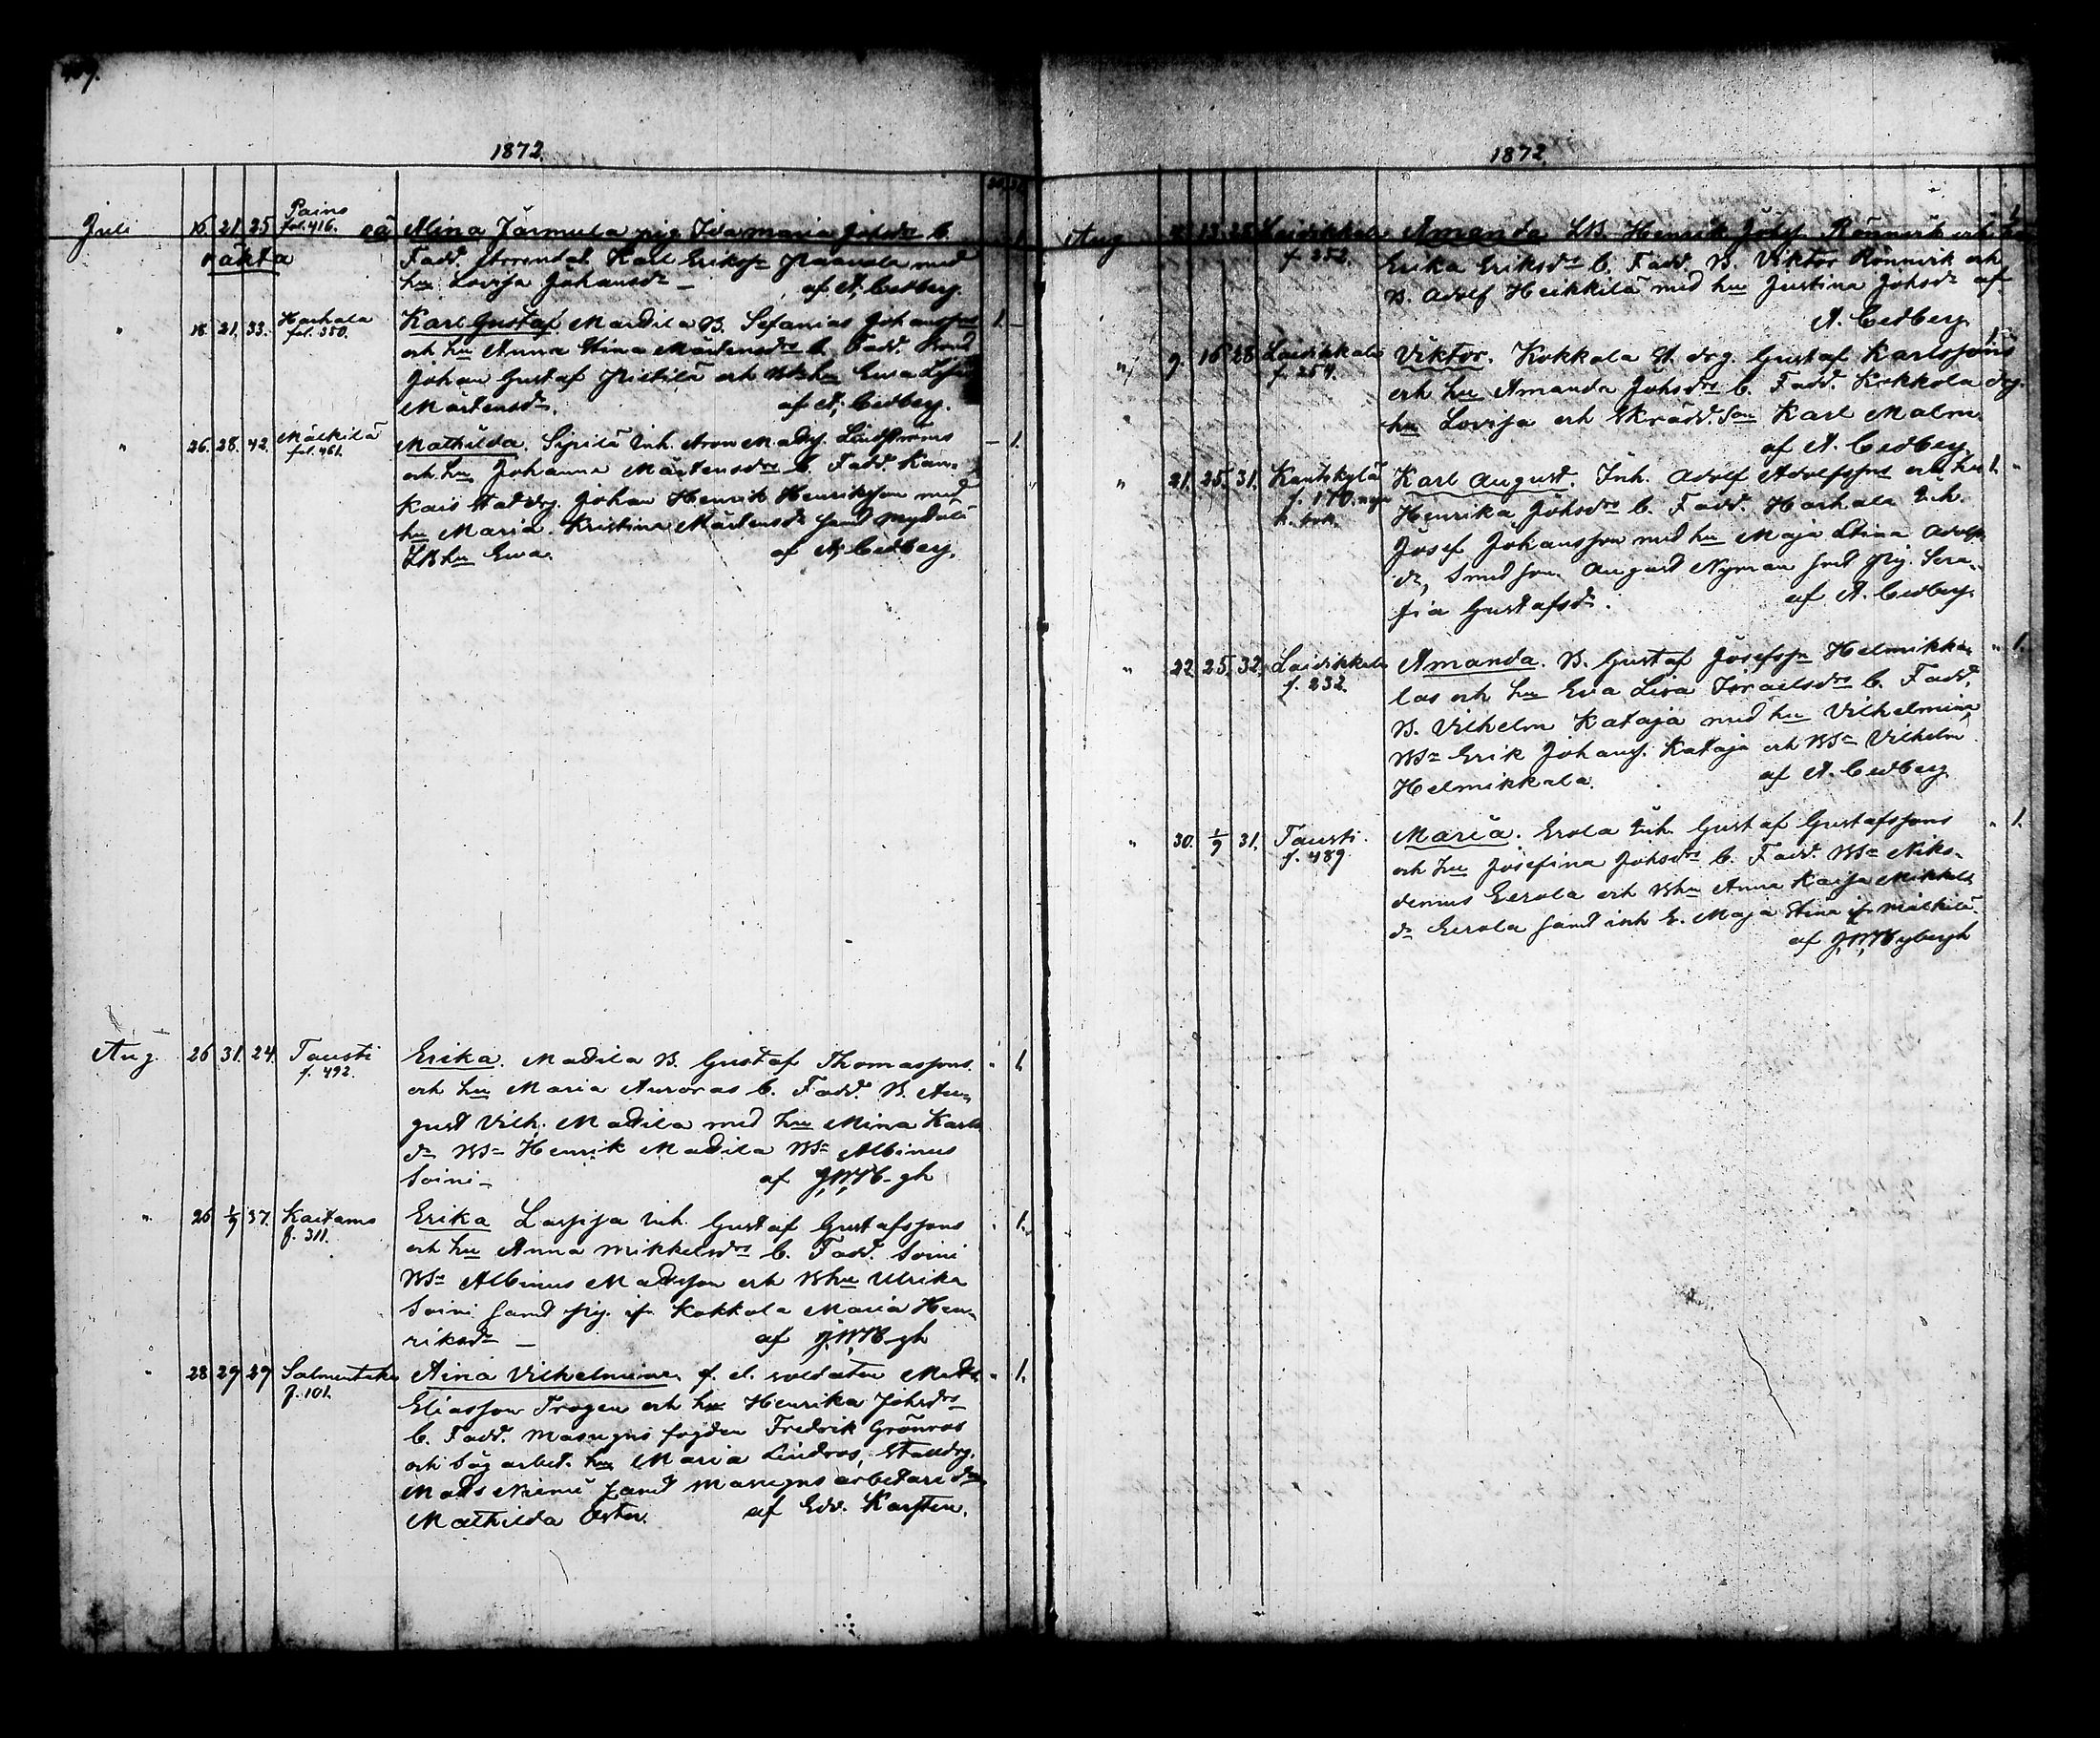 1872.
Juli 16. 21. 25. Pains fol. 416. oä Mina Järmula pig. Ida Maria Johsdrs b.
oäkta Fadd. Arrendat. Karl Eriksn Paavola med
hu Lovisa Johansdr _ af A. Cedberg.
" 18. 21. 33. Harhala fol. 380. Karl Gustaf Mardila B. Sefanias Johanssons 1. –
och hu Anna Stina Mårtensdrs b. Fadd.
Johan Gustaf Pietilä och Bhu Ewa Lisa
Mårtensdr. af A. Cedberg.
" 26. 28. 42. Mälkilä fol. 461. Mathilda. Sipilä Inh. Aron Madss. Lindströms – 1.
och hu Johanna Mårtensdrs b. Fadd. Kan-
kais statdrg. Johan Henrik Henriksson med
hu Maria Kristina Mårtensdr samt
hu Ewa. af A. Cedberg.
Aug. 26 31. 24. Tausti f. 492. Erika. Madila B. Gustaf Thomassons " 1.
och hu Maria Auroras b. Fadd. B. Au-
gust Vilh. Madila med hu Mina Karls
dr BSn Henrik Madila BSn Albinus
Soini _ af J.W.W-gh
" 26 1/9 37. Kaitamo f. 311. Erika Lassila Inh. Gustaf Gustafssons " 1.
och hu Anna Mikkelsdrs b. Fadd. Soini
BSn Albinus Madsson och Bhu Ulrika
Soini samt pig. ifr. Kokkola Maria Hen-
riksdr _ af J.W.W-gh
" 28 29 29 Salmentaka f. 101. Aina Vilhelmina. f. d. soldaten Mats " 1.
Eliasson Trogen och hu Henrika Johsdrs
b. Fadd. Masugns fogden Fredrik Grönroos
och Såg arbet. hu Maria Lindroos, Stalldrg.
Mats Niemi samt Masugns arbetare dr
Mathilda Öster. af Edv. Karsten.
1872.
Aug 13. 28. Laidikkala f. 252. Amanda LB. Henrik Johss. Rönnvik och hu 1.
Erika Eriksdrs b. Fadd. B. Viktor Rönnvik och
B. Adolf Heikkilä med hu Justina Johsdr af
A. Cedberg.
" 9. 16 28 Laidikkala f. 254. Viktor. Kokkola St. drg. Gustaf Karlssons 1.
och hu Amanda Johsdrs b. Fadd. Kokkola drg.
hu Lovisa och Skrädd. Son Karl Malm.
af A. Cedberg.
" 21. 25. 31. Kantokylä f. 170. nya k. bok. Karl August. Inh. Adolf Adolfssons och hu 1. "
Henrika Johsdrs b. Fadd. Harhala Inh.
Josef Johansson med hu Maja Stina Adolfs-
dr, Smed son August Nyman samt Pig. Sera-
fia Gustafsdr. af A. Cedberg.
" 22. 25. 32. Laidikkala f. 232. Amanda. B. Gustaf Josefsn Helmikka- " 1.
las och hu Eva Lisa Israelsdrs b. Fadd.
B. Vilhelm Kataja med hu Vilhelmina,
BSn Erik Johanss. Kataja och BSn Vilhelm
Helmikkala. af A. Cedberg
" 30. 1/9 31. Tausti. f. 489. Maria. Erola Inh. Gustaf Gustafssons " 1.
och hu Josefina Johsdrs b. Fadd. BSn Niko-
demus Eerola och Bhu Anna Kaisa Mikkels
dr Eerola samt inh E. Maja Stina ifr Mälkilä.
af J.W.Wybergh